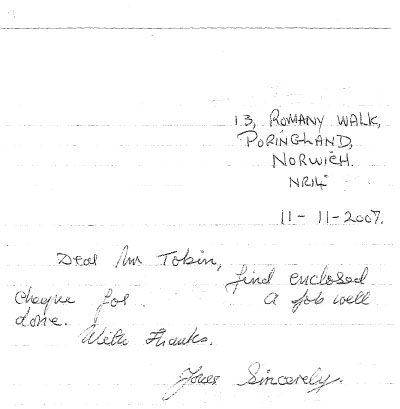 13, ROMANY WALK,
PORINGLAND,
NORWICH.
NR14
11-11-2007.
Dear Mr Tobin,
find enclosed
cheque for a job well
done.
With thanks.
Yours Sincerely.